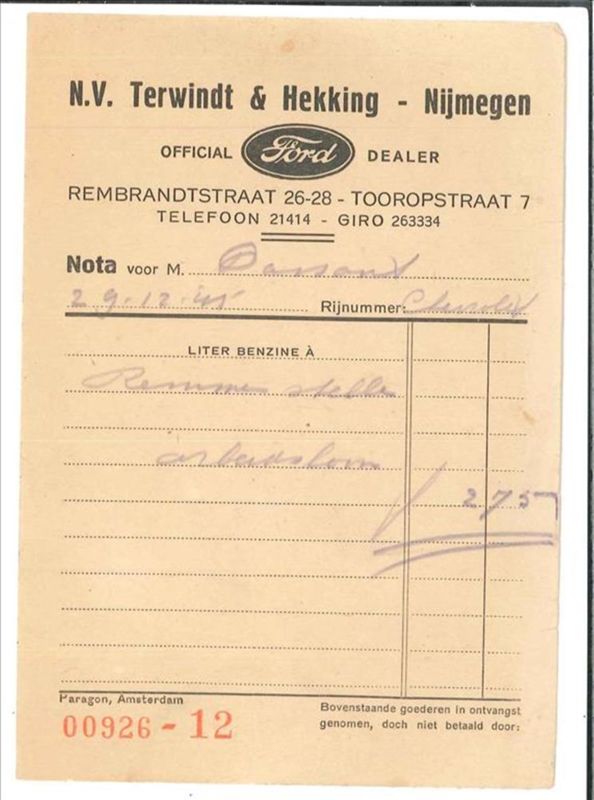 N.V. Terwindt & Hekking - Nijmegen
OFFICIAL Ford DEALER
REMBRANDTSTRAAT 26-28 - TOOROPSTRAAT 7
TELEFOON 21414 - GIRO 263334
Nota voor M.
29-12-'45 Rijnummer: Chevrolet
LITER BENZINE À
Remmen stellen
arbeidsloon
ƒ 2 75
Paragon, Amsterdam
00926 - 12
Bovenstaande goederen in ontvangst
genomen, doch niet betaald door: